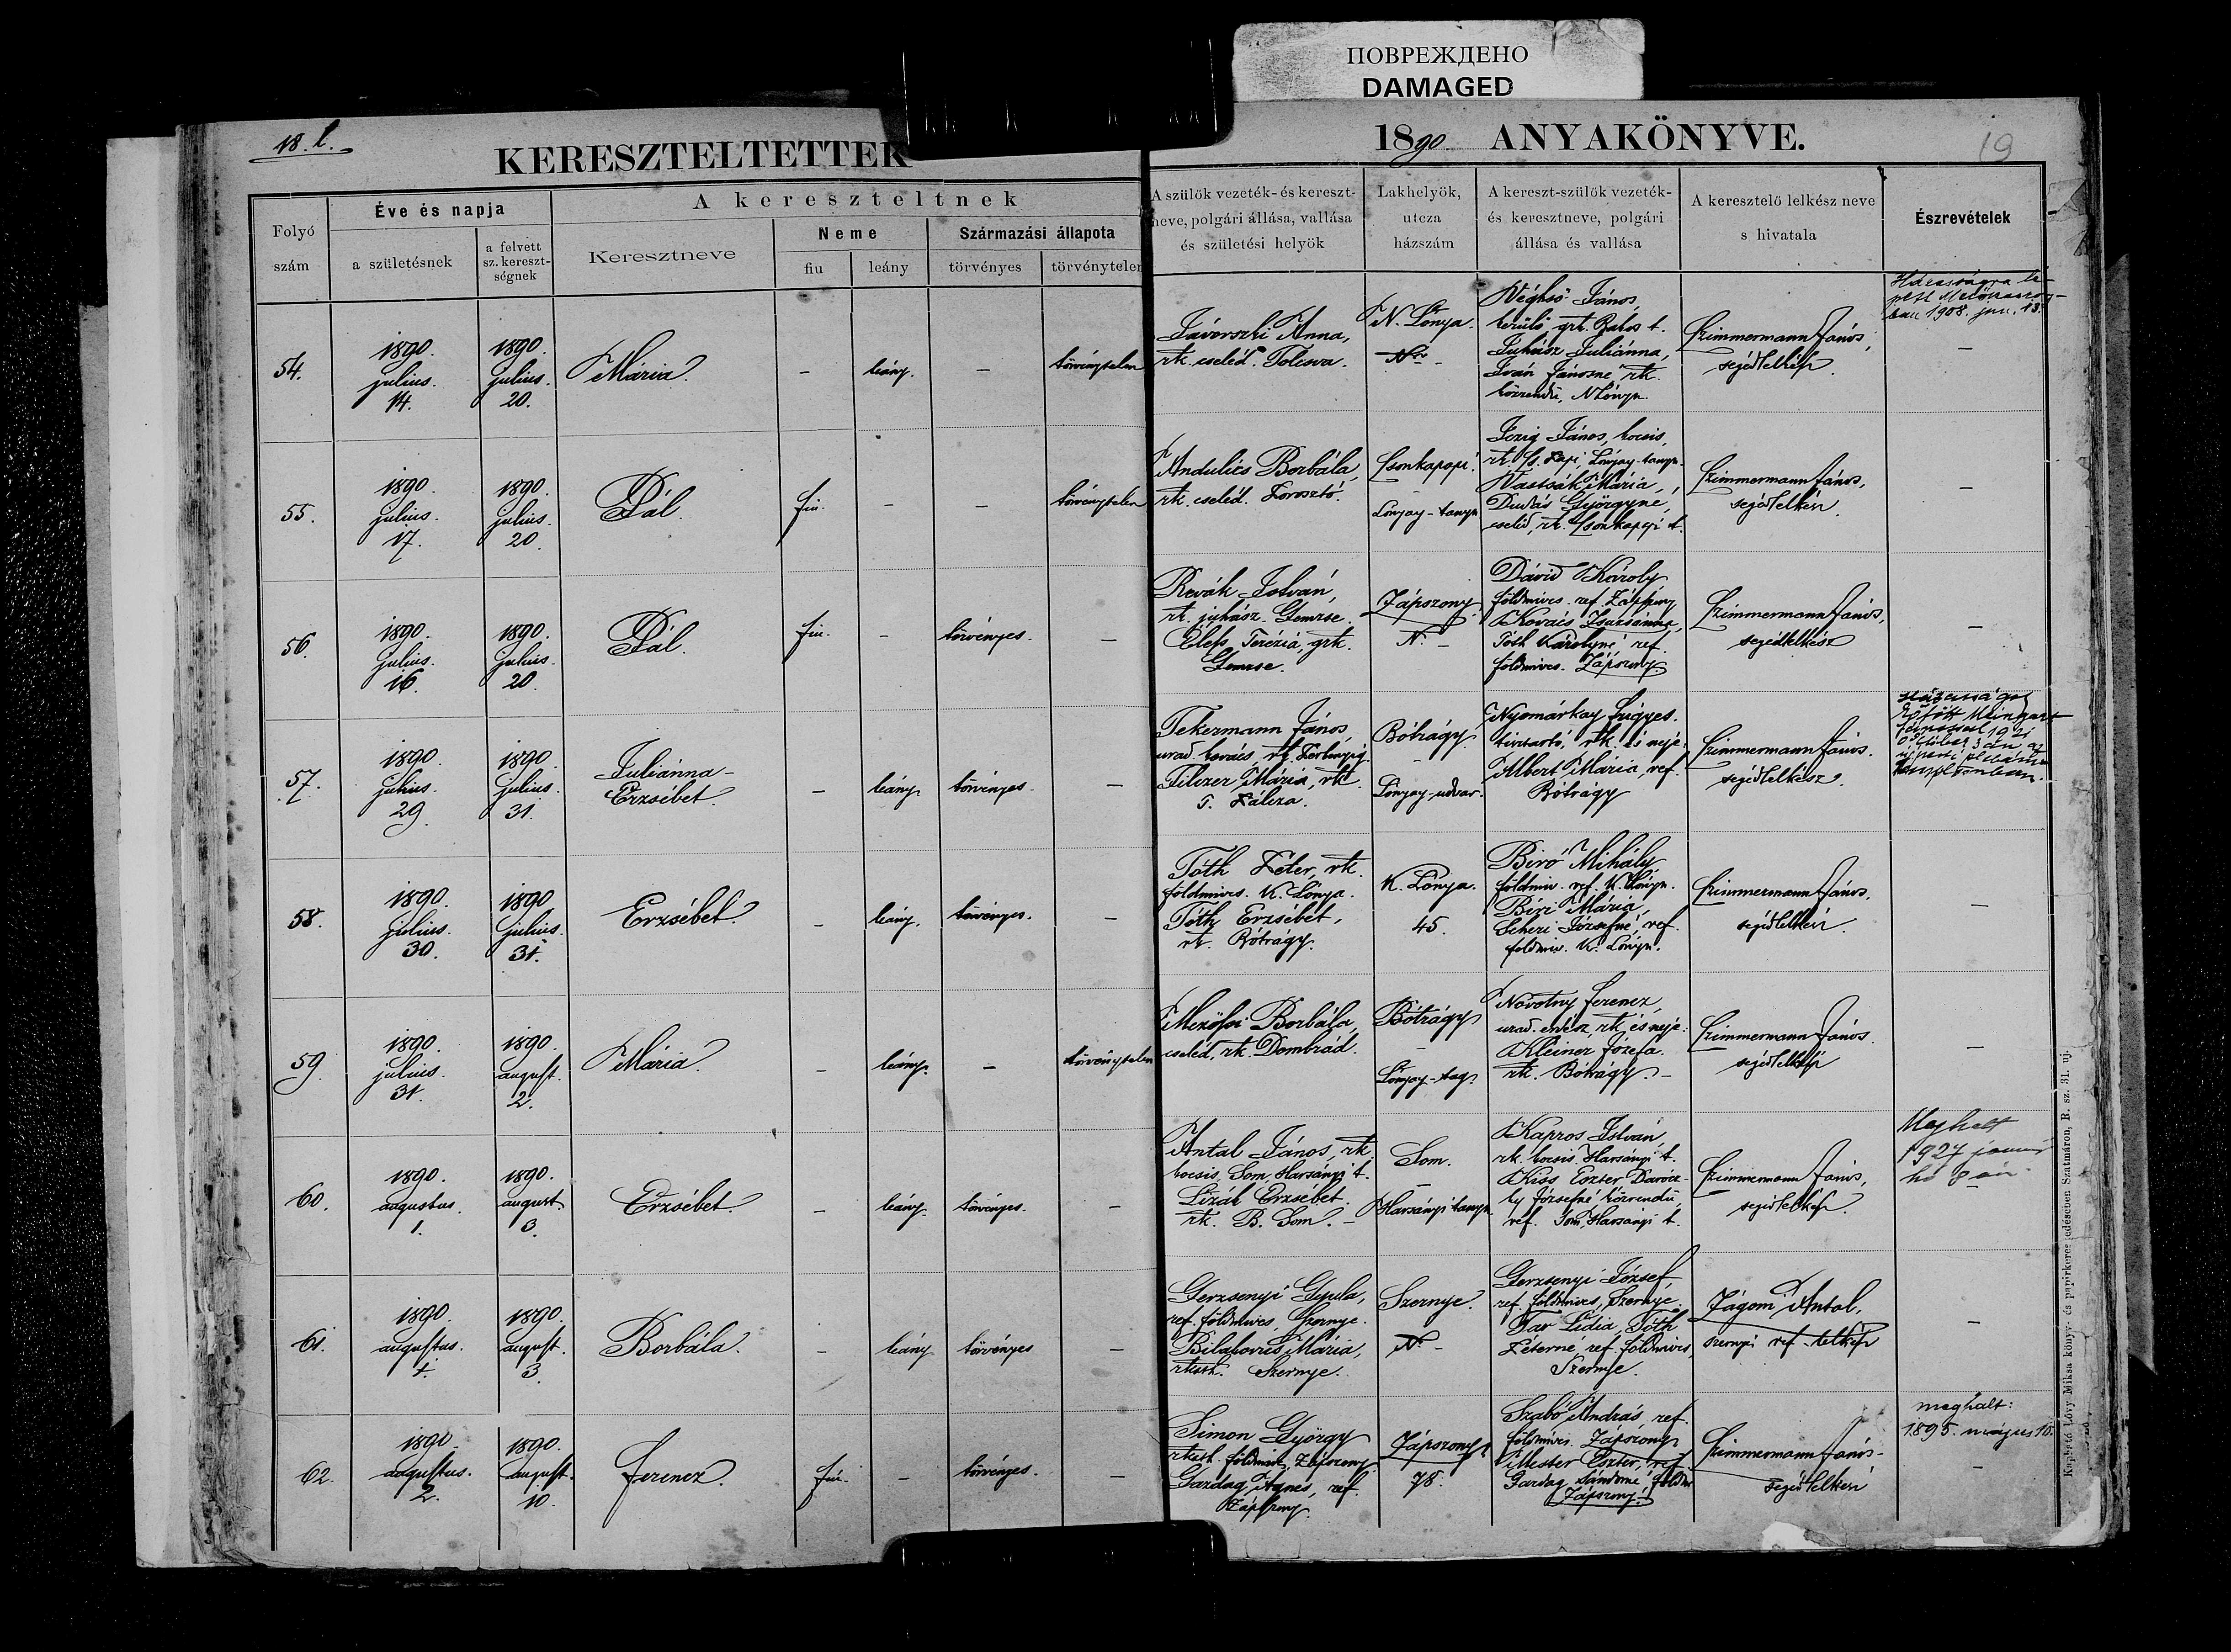 ПОВРЕЖДЕНО
DAMAGED
18. l.
KERESZTELTETTEK
1890 ANYAKÖNYVE.
19
Folyó szám
Éve és napja
a születésnek
a felvett sz. kereszt-ségnek
A kereszteltnek
Keresztneve
Neme
fiu
leány
Származási állapota
törvényes
törvénytelen
A szülök vezeték- és kereszt-
neve, polgári állása, vallása
és születési helyök
Lakhelyök,
utcza
házszám
A kereszt-szülök vezeték-
és keresztneve, polgári
állása és vallása
A keresztelő lelkész neve
s hivatala
Észrevételek
54.
1890. julius. 14.
1890. julius. 20.
Mária.
–
leány.
–
törvénytelen
Jávorszki Anna,
rk. cseléd. Tolcsva.
N. Lónya.
Nro –
Véghső János,
kerülő, grk. Bátos t.
Juhász Juliánna,
Iván Jánosné rk.
közrendü, N Lónya.
Czimmermann János,
segédlelkész.
1908. jun. 13.
–
55.
1890. julius. 17.
1890. julius. 20.
Pál.
fiu.
–
–
törvénytelen
Andulics Borbála,
rk. cseléd. Porosztó.
Csonkapapi.
–
Lónyay-tanya
János, kocsis,
rk. Cs. Papi, Lónyay-tanya.
Mária,
Dudás Györgyné,
cseléd, rk. Csonkapapi t.
Czimmermann János,
segédlelkész.
–
56.
1890. julius. 16.
1890. julius. 20.
Pál.
fiu.
–
törvényes.
–
Revák István,
rk. juhász. Gemzse.
Élefs Terézia, grk.
Gemzse.
Zápszony
N. –
Dávid Károly
földmives. ref. Zápszony
Kovács Zsuzsánna,
Tóth Károlyné, ref.
földmives. Zápszony.
Czimmermann János,
segédlelkész
–
57.
1890. julius. 29.
1890. julius. 31.
Juliánna-
Erzsébet.
–
leány
törvényes.
–
Tekermann János,
urad. kovács, rk.
Filczer Mária, rk.
T. Pálcza.
Bótrágy.
–
Lónyay-udvar.
Nyomárkay Frigyes.
tiszttartó, rk. és neje:
Albert Mária, ref.
Bótrágy
Czimmermann János.
segédlelkész.
Házasságot
kötött
Jánossal 1921
október 3 án az
ujpesti plebánia
templomban.
58.
1890. julius. 30.
1890. julius. 31.
Erzsébet.
–
leány.
törvényes.
–
Tóth Péter, rk.
földmives. K. Lónya.
Tóth Erzsébet,
rk. Bótrágy.
K. Lónya.
45.
Biró Mihály
földmiv. ref. K. Lónya.
Bizi Mária,
Józsefné, ref.
földmiv. K. Lónya.
Czimmermann János.
segédlelkész.
–
59.
1890. julius. 31.
1890. august. 2.
Mária.
–
leány.
–
törvénytelen
Mezősi Borbála,
cseléd, rk. Dombrád.
Bótrágy
–
Lónyay-tag.
Novotny Ferencz,
urad. erdész, rk. és neje:
Kleiner Józefa.
rk. Bótrágy. –
Czimmermann János.
segédlelkész
–
60.
1890. augustus. 1.
1890. august. 3.
Erzsébet
–
leány.
törvényes.
–
Antal János, rk.
kocsis, Som, Harsányi t.
Lizák Erzsébet.
rk. B. Som. –
Som.
–
Harsányi tanya
Kapros István,
rk. kocsis. Harsányi t.
Kiss Eszter Darócz-
ky Józsefné közrendü
ref. Som, Harsányi t.
Czimmermann János,
segédlelkész.
Meghalt
1927 január
hó 8 án.
61.
1890. augustus. 1.
1890. august. 3.
Borbála.
–
leány
törvényes
–
Gerzsenyi Gyula,
ref. földmives, Szernye.
Mária,
Szernye.
Szernye.
No –
Gerzsenyi József
ref. földmives, Szernye.
Tar Lidia, Tóth
Péterné, ref. földmives,
Szernye.
Zágoni Antal,
szernyei ref. lelkész
–
62.
1890. augustus. 2.
1890. august. 10.
Ferencz.
fiu.
–
törvényes.
–
Simon György
földmives, Zápszony
Gazdag Ágnes, ref.
Zápszony.
Zápszony
78.
Szabó András, ref.
földmives. Zápszony
Mester Eszter, ref.
Gazdag Sándorné földm.
Zápszony.
Czimmermann János –
segédlelkész
meghalt:
1895. május 10.
–
Kapható Lövy Miksa könyv- és papirkereskedésében Szatmáron, R. sz. 31. uj.